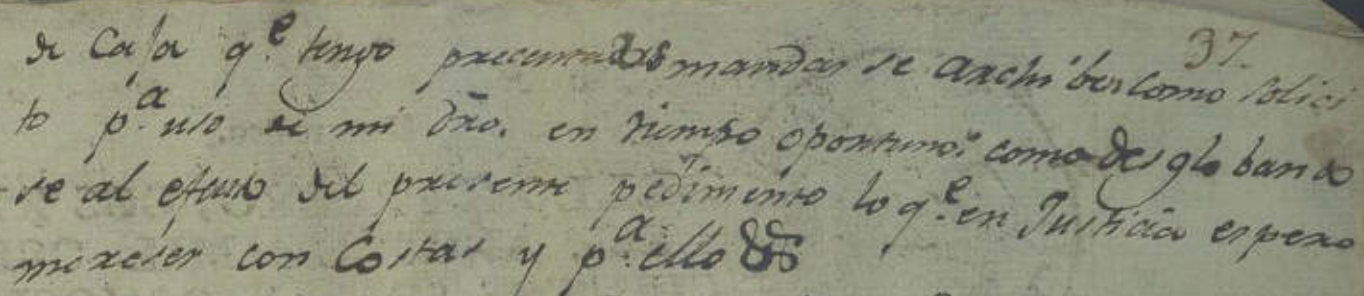 37.
de Casa q.e tengo precentados mandar se archiben como solici
to p.a uso de mi dro. en tiempo oportuno: como desglobando
se al efecto del presente pedimento lo q.e en Justicia espero
mereser con Costas y p.a ello &s